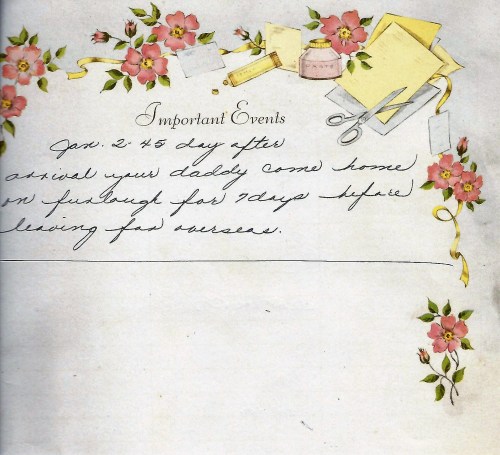 Important Events
Jan. 2-45 day after
arrival your daddy come home
on furlough for 7 days before
leaving for overseas.